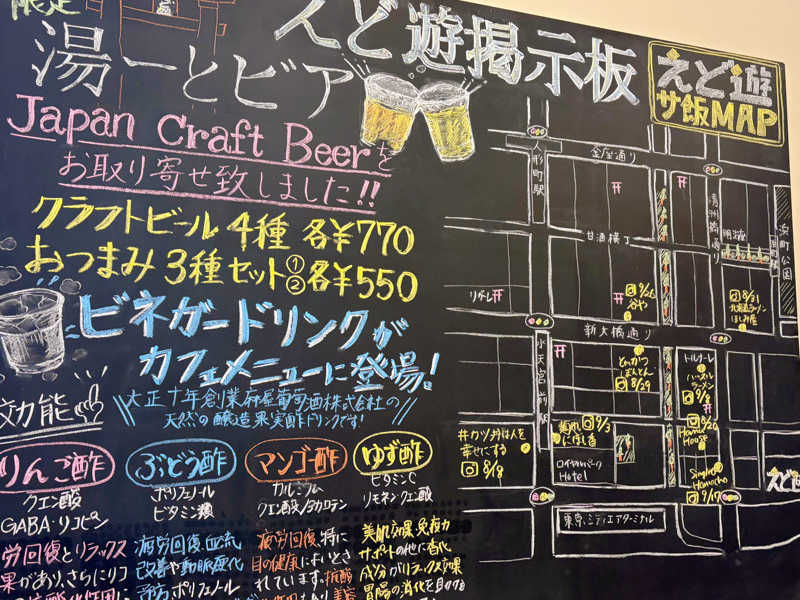 限定
湯ーとビア
Japan Craft Beerを
お取り寄せ致しました!!
クラフトビール4種 各¥770
おつまみ3種セット①②各¥550
ビネガードリンクが
カフェメニューに登場!
効能
大正十年創業
株式会社の
天然の醸造果実酢ドリンクです!
りんご酢
クエン酸
GABA・リコピン
ぶどう酢
ポリフェノール
ビタミン類
マンゴー酢
カルシウム
クエン酸/βカロテン
ゆず酢
ビタミンC
リモネン クエン酸
労回復とリラックス
果があり、さらにリコ
疲労回復、血流
改善や動脈硬化
予防 ポリフェノール
疲労回復、特に
目の健康によいとさ
れています。抗酸
美肌効果、免疫力
サポートの他に香化
成分がリラックス効果
胃腸の消化を助ける
えど遊掲示板
えど遊
サ飯MAP
人形町駅
金座通り
清洲橋通り
浜町公園
甘酒横丁
明治座
浜町駅
9/26
谷や
8/31
北海道ラーメン
新大橋通り
水天宮前駅
とんかつ
8/29
トルナーレ
ラーメン
9/8
9/20
House
9/3
にぼし香
#カツ丼は人を
幸せにする
8/18
ロイヤルパーク
Hotel
Hamacho
9/17
東京シティエアターミナル
えど